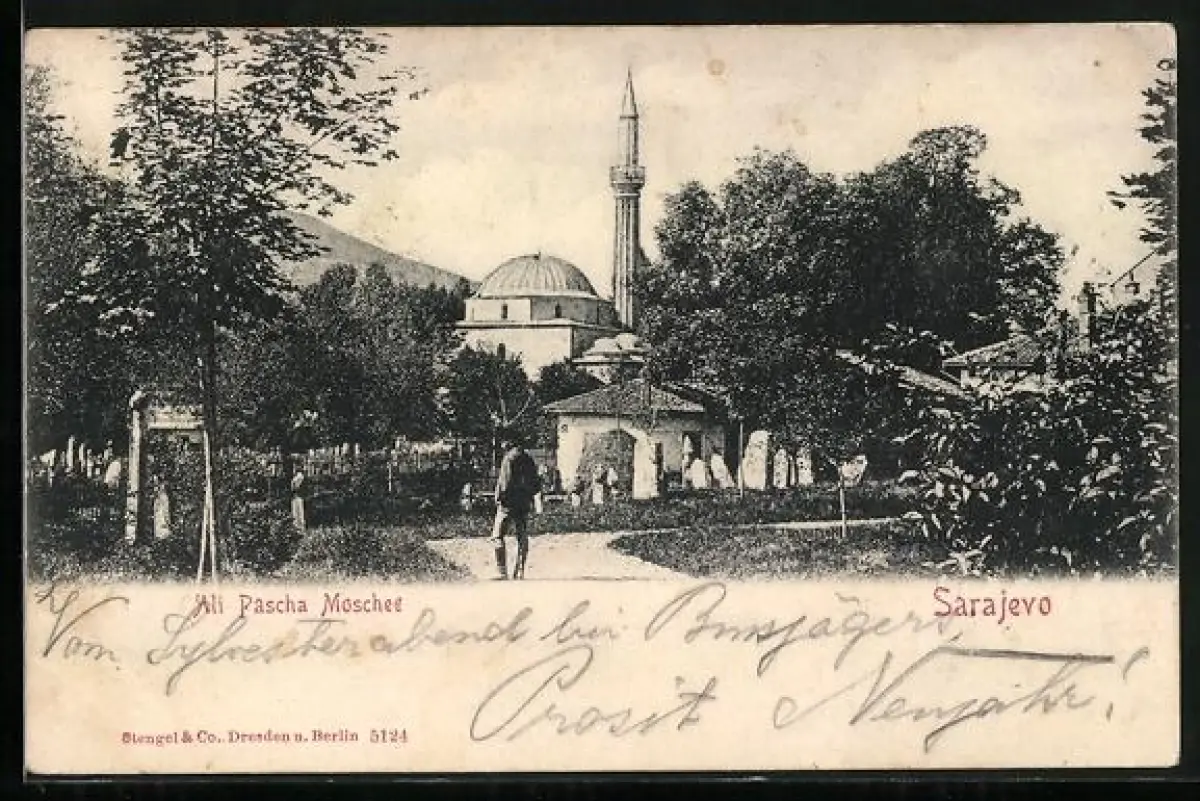 Ali Pascha Moschee
Sarajevo
Vom Sylvesterabend bei
Prosit Neujahr!
Stengel & Co., Dresden u. Berlin 5124